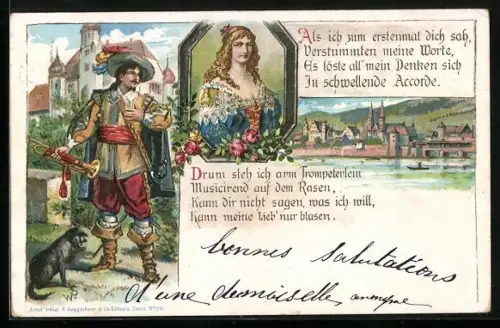 Als ich zum erstenmal dich sah,
Verstummten meine Worte,
Es löste all' mein Denken sich
In schwellende Accorde.
Drum steh ich arm Trompeterlein
Musicirend auf dem Rasen,
Kann dir nicht sagen, was ich will,
Kann meine Lieb' nur blasen.
bonnes salutations
d'une demoiselle anonyme